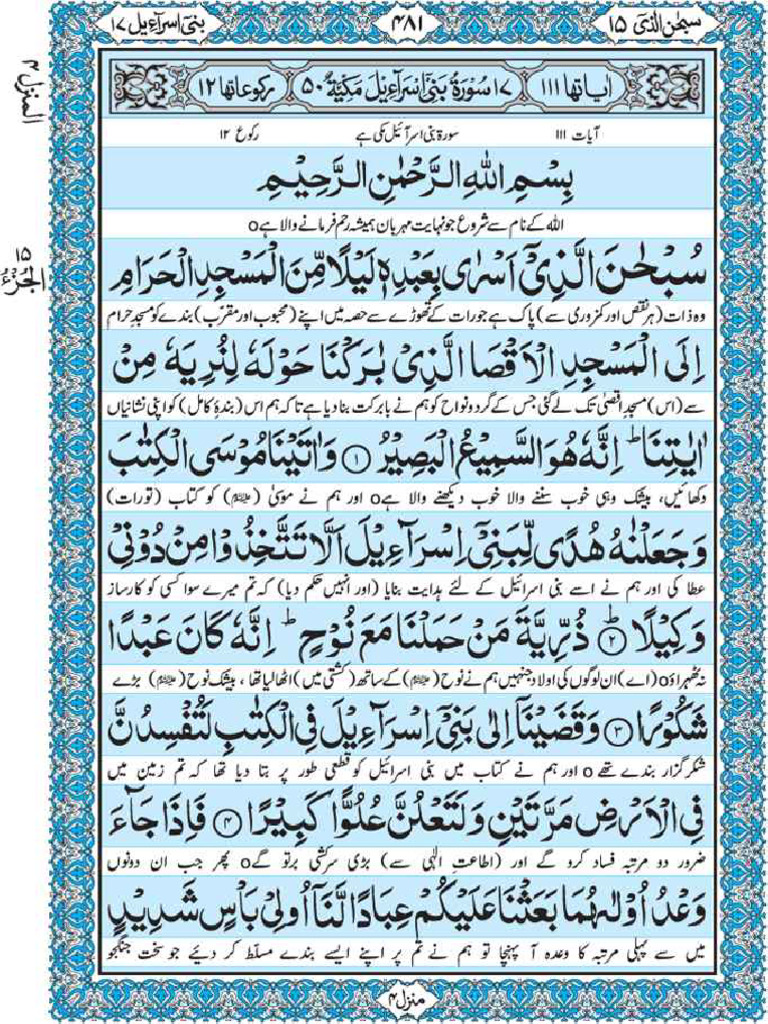 سبحٰن الذی ۱۵
۴۸۱
بنیٓ اسرآءیل ۱۷
المنزل ۴
اٰیاتھا ۱۱۱
۱۷ سُوۡرَۃُ بَنِیۡۤ اِسۡرَآءِیۡلَ مَکِّیَّۃٌ ۵۰
رکوعاتھا ۱۲
آیات ۱۱۱
سورۃ بنی اسرآئیل مکی ہے
رکوع ۱۲
بِسۡمِ اللہِ الرَّحۡمٰنِ الرَّحِیۡمِ
اللہ کے نام سے شروع جو نہایت مہربان ہمیشہ رحم فرمانے والا ہے o
۱۵
الجُزْءُ
سُبۡحٰنَ الَّذِیۡۤ اَسۡرٰی بِعَبۡدِہٖ لَیۡلًا مِّنَ الۡمَسۡجِدِ الۡحَرَامِ
وہ ذات (ہر نقص اور کمزوری سے) پاک ہے جو رات کے تھوڑے سے حصہ میں اپنے (محبوب اور مقرّب) بندے کو مسجدِ حرام
اِلَی الۡمَسۡجِدِ الۡاَقۡصَا الَّذِیۡ بٰرَکۡنَا حَوۡلَہٗ لِنُرِیَہٗ مِنۡ
سے (اس) مسجدِ اقصیٰ تک لے گئی جس کے گرد و نواح کو ہم نے بابرکت بنا دیا ہے تاکہ ہم اس (بندۂ کامل) کو اپنی نشانیاں
اٰیٰتِنَا ؕ اِنَّہٗ ہُوَ السَّمِیۡعُ الۡبَصِیۡرُ ﴿۱﴾ وَ اٰتَیۡنَا مُوۡسَی الۡکِتٰبَ
دکھائیں، بیشک وہی خوب سننے والا خوب دیکھنے والا ہے o اور ہم نے موسٰی (علیہ السلام) کو کتاب (تورات)
وَ جَعَلۡنٰہُ ہُدًی لِّبَنِیۡۤ اِسۡرَآءِیۡلَ اَلَّا تَتَّخِذُوۡا مِنۡ دُوۡنِیۡ
عطا کی اور ہم نے اسے بنی اسرائیل کے لئے ہدایت بنایا (اور انہیں حکم دیا) کہ تم میرے سوا کسی کو کارساز
وَکِیۡلًا ؕ﴿۲﴾ ذُرِّیَّۃَ مَنۡ حَمَلۡنَا مَعَ نُوۡحٍ ؕ اِنَّہٗ کَانَ عَبۡدًا
نہ ٹھہراؤ o (اے) ان لوگوں کی اولاد جنہیں ہم نے نوح (علیہ السلام) کے ساتھ (کشتی میں) اٹھا لیا تھا، بیشک نوح (علیہ السلام) بڑے
شَکُوۡرًا ﴿۳﴾ وَ قَضَیۡنَاۤ اِلٰی بَنِیۡۤ اِسۡرَآءِیۡلَ فِی الۡکِتٰبِ لَتُفۡسِدُنَّ
شکرگزار بندے تھے o اور ہم نے کتاب میں بنی اسرائیل کو قطعی طور پر بتا دیا تھا کہ تم زمین میں
فِی الۡاَرۡضِ مَرَّتَیۡنِ وَ لَتَعۡلُنَّ عُلُوًّا کَبِیۡرًا ﴿۴﴾ فَاِذَا جَآءَ
ضرور دو مرتبہ فساد کرو گے اور (اطاعتِ الٰہی سے) بڑی سرکشی برتو گے o پھر جب ان دونوں
وَعۡدُ اُوۡلٰىہُمَا بَعَثۡنَا عَلَیۡکُمۡ عِبَادًا لَّنَاۤ اُولِیۡ بَاۡسٍ شَدِیۡدٍ
میں سے پہلی مرتبہ کا وعدہ آ پہنچا تو ہم نے تم پر اپنے ایسے بندے مسلّط کر دیئے جو سخت جنگجو
منزل ۴